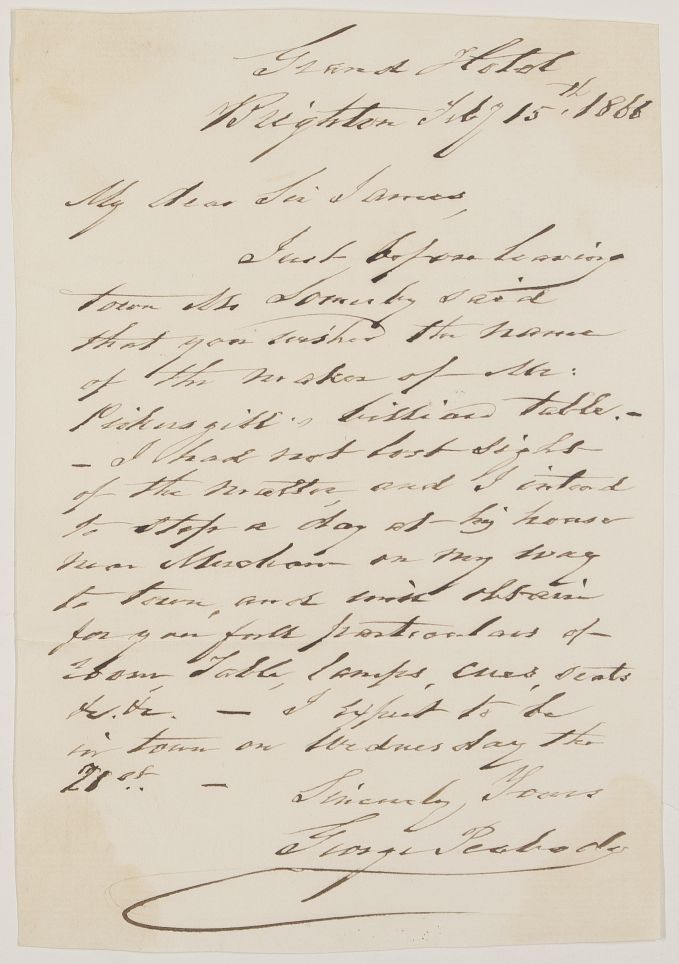 Grand Hotel
Brighton Feby 15th, 1866
My dear Sir James,
Just before leaving
town Mr Somerby said
that you wished the name
of the maker of Mr:
Pickersgill's billiard table.-
- I had not lost sight
of the matter, and I intend
to stop a day at his house
near Mersham on my way
to town, and will obtain
for you full particulars of
room, Table, lamps, cues, seats
&c. &c. - I expect to be
in town on Wednesday the
21st. -
Sincerely Yours
George Peabody